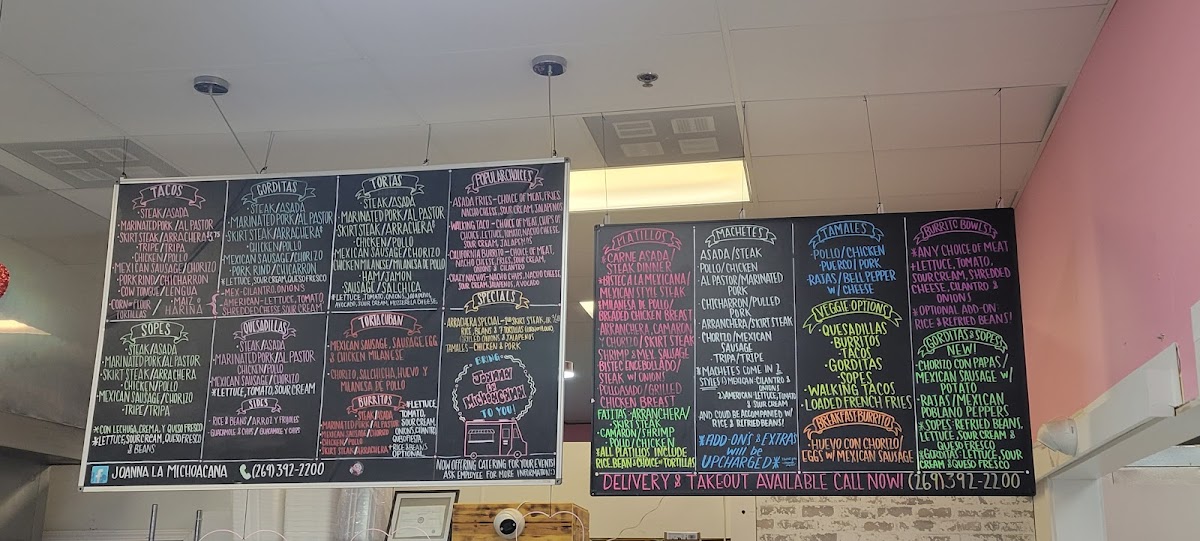 TACOS
STEAK/ASADA
MARINATED PORK/AL PASTOR
SKIRT STEAK/ARRACHERA
TRIPE/TRIPA
CHICKEN/POLLO
MEXICAN SAUSAGE/CHORIZO
PORK RIND/CHICHARRON
COW TONGUE/LENGUA
CORN OR FLOUR TORTILLAS
MAIZ o HARINA
MEX-CILANTRO, ONIONS
AMERICAN-LETTUCE, TOMATO,
SHREDDED CHEESE, SOUR CREAM
GORDITAS
STEAK/ASADA
MARINATED PORK/AL PASTOR
SKIRT STEAK/ARRACHERA
CHICKEN/POLLO
MEXICAN SAUSAGE/CHORIZO
PORK RIND/CHICARRON
*LETTUCE, SOUR CREAM, QUESO FRESCO
TORTAS
STEAK/ASADA
MARINATED PORK/AL PASTOR
SKIRT STEAK/ARRACHERA
CHICKEN/POLLO
MEXICAN SAUSAGE/CHORIZO
CHICKEN MILANESE/MILANESA DE POLLO
HAM/JAMON
SAUSAGE/SALCHICA
*LETTUCE, TOMATO, ONIONS, JALAPENOS,
AVOCADO, SOUR CREAM, MOZZERELLA CHEESE
POPULAR CHOICES
ASADA FRIES-CHOICE OF MEAT, FRIES,
NACHO CHEESE, SOUR CREAM, JALAPENOS
WALKING TACO-CHOICE OF MEAT, CHIPS OF
CHOICE, LETTUCE, TOMATO, NACHO CHEESE,
SOUR CREAM, JALAPENOS
CALIFORNIA BURRITO-CHOICE OF MEAT,
NACHO CHEESE, FRIES, SOUR CREAM,
ONIONS & CILANTRO
NACHOS-NACHO CHIPS, NACHO CHEESE,
SOUR CREAM, JALAPENOS, AVOCADO
SPECIALS
RICE, BEANS & 7 TORTILLAS
GRILLED ONIONS & JALAPENOS
TAMALES-CHICKEN & PORK
SOPES
STEAK/ASADA
MARINATED PORK/AL PASTOR
SKIRT STEAK/ARRACHERA
CHICKEN/POLLO
MEXICAN SAUSAGE/CHORIZO
TRIPE/TRIPA
*CON LECHUGA, CREMA, Y QUESO FRESCO
*LETTUCE, SOUR CREAM, QUESO FRESCO
& BEANS
QUESADILLAS
STEAK/ASADA
MARINATED PORK/AL PASTOR
SKIRT STEAK/ARRACHERA
CHICKEN/POLLO
MEXICAN SAUSAGE/CHORIZO
*LETTUCE, TOMATO, SOUR CREAM
SIDES
RICE & BEANS/ARROZ Y FRIJOLES
GUACAMOLE & CHIPS/GUACAMOLE Y CHIPS
TORTA CUBAN
MEXICAN SAUSAGE, SAUSAGE, EGG
& CHICKEN MILANESE
CHORIZO, SALCHICHA, HUEVO Y
MILANESA DE POLLO
BURRITOS
STEAK/ASADA
MARINATED PORK/AL PASTOR
MEXICAN SAUSAGE/CHORIZO
CHICKEN/POLLO
SKIRT STEAK/ARRACHERA
*LETTUCE,
TOMATO,
SOUR CREAM,
ONIONS, CILANTRO
QUESO FRESCA
*RICE & BEANS
OPTIONAL
BRING
JOANNA
LA
MICHOACANA
TO YOU!
NOW OFFERING CATERING FOR YOUR EVENTS!
ASK EMPLOYEE FOR MORE INFORMATION!
JOANNA LA MICHOACANA
(269)392-2200
PLATILLOS
CARNE ASADA/
STEAK DINNER
BISTEC A LA MEXICANA/
MEXICAN STYLE STEAK
MILANESA DE POLLO/
BREADED CHICKEN BREAST
ARRANCHERA, CAMARON,
Y CHORIZO/SKIRT STEAK
SHRIMP & MEX. SAUSAGE
BISTEC ENCEBOLLADO/
STEAK W/ONION
POLLO ASADO/GRILLED
CHICKEN BREAST
FAJITAS-ARRANCHERA/
SKIRT STEAK
CAMARON/SHRIMP
POLLO/CHICKEN
*ALL PLATILLOS INCLUDE
RICE, BEAN & CHOICE OF TORTILLAS
MACHETES
ASADA/STEAK
POLLO/CHICKEN
AL PASTOR/MARINATED
PORK
CHICHARRON/PULLED
PORK
ARRANCHERA/SKIRT STEAK
CHORIZO/MEXICAN
SAUSAGE
TRIPA/TRIPE
*MACHETES COME IN 2
STYLES 1) MEXICAN-CILANTRO &
ONIONS
2) AMERICAN-LETTUCE, TOMATO
& SOUR CREAM
AND COULD BE ACCOMPANIED W/
RICE & REFRIED BEANS!
*ADD-ONS & EXTRAS
will be
UPCHARGED*
TAMALES
POLLO/CHICKEN
PUERCO/PORK
RAJAS/BELL PEPPER
W/CHEESE
VEGGIE OPTIONS
QUESADILLAS
BURRITOS
TACOS
GORDITAS
SOPES
WALKING TACOS
LOADED FRENCH FRIES
BREAKFAST BURRITOS
HUEVO CON CHORIZO/
EGGS W/ MEXICAN SAUSAGE
BURRITO BOWLS
*ANY CHOICE OF MEAT
*LETTUCE, TOMATO,
SOUR CREAM, SHREDDED
CHEESE, CILANTRO &
ONIONS
*OPTIONAL ADD-ON:
RICE & REFRIED BEANS!
GORDITAS & SOPES
NEW!
CHORIZO CON PAPAS/
MEXICAN SAUSAGE W/
POTATO
RAJAS/MEXICAN
POBLANO PEPPERS
*SOPES: REFRIED BEANS,
LETTUCE, SOUR CREAM &
QUESO FRESCO
*GORDITAS: LETTUCE, SOUR
CREAM & QUESO FRESCO
DELIVERY & TAKEOUT AVAILABLE CALL NOW! (269)392-2200